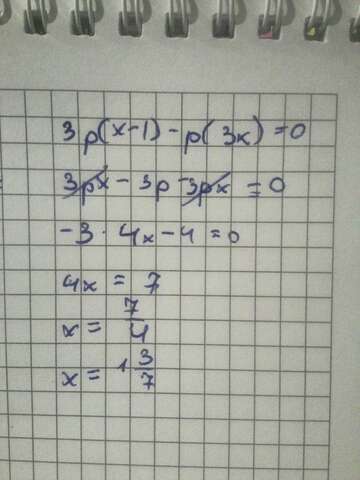 3p(x-1)-p(3x)=0
3px-3p-3px=0
-3·4x-4=0
4x=7
x=7/4
x=1 3/7